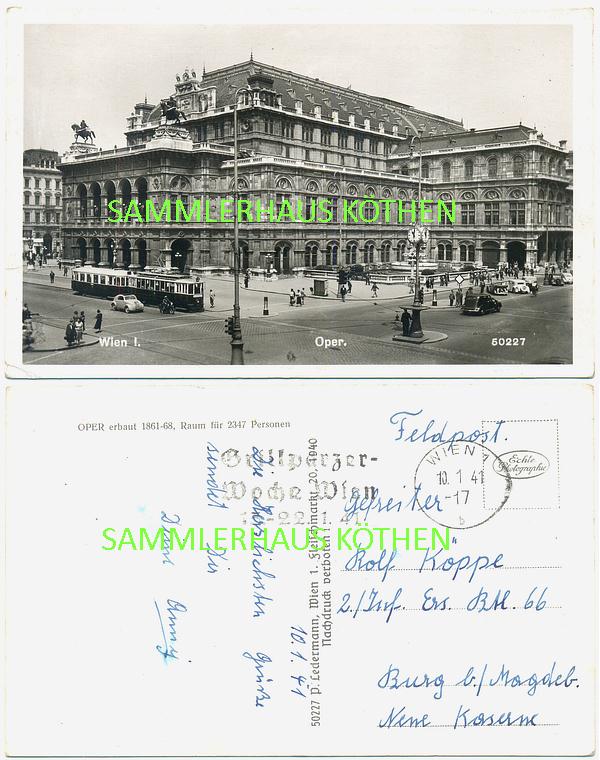 SAMMLERHAUS KÖTHEN
Wien I.
Oper.
50227
OPER erbaut 1861-68, Raum für 2347 Personen
Feldpost.
Grillparzer-
Woche Wien
15.-22.1.41.
WIEN 1
10.1.41
-17
b
Echte
Photographie
Gefreiter
SAMMLERHAUS KÖTHEN
Rolf Koppe
2./Inf. Ers. Btl. 66
Burg b./Magdeb.
Neue Kaserne
50227 P. Ledermann, Wien 1. Fleischmarkt 20, 1940
Nachdruck verboten!
10.1.41
Die herzlichsten Grüße
sendet Dir
Deine Anny